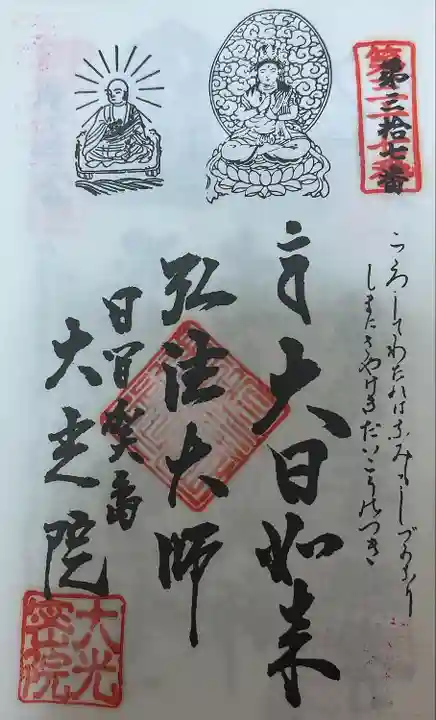 第三拾七番
こゝろしてわたればなみもしづかなり
しまにさやけきだいこうのつき
大日如来
弘法大師
日間賀島
大光院
大光
密院